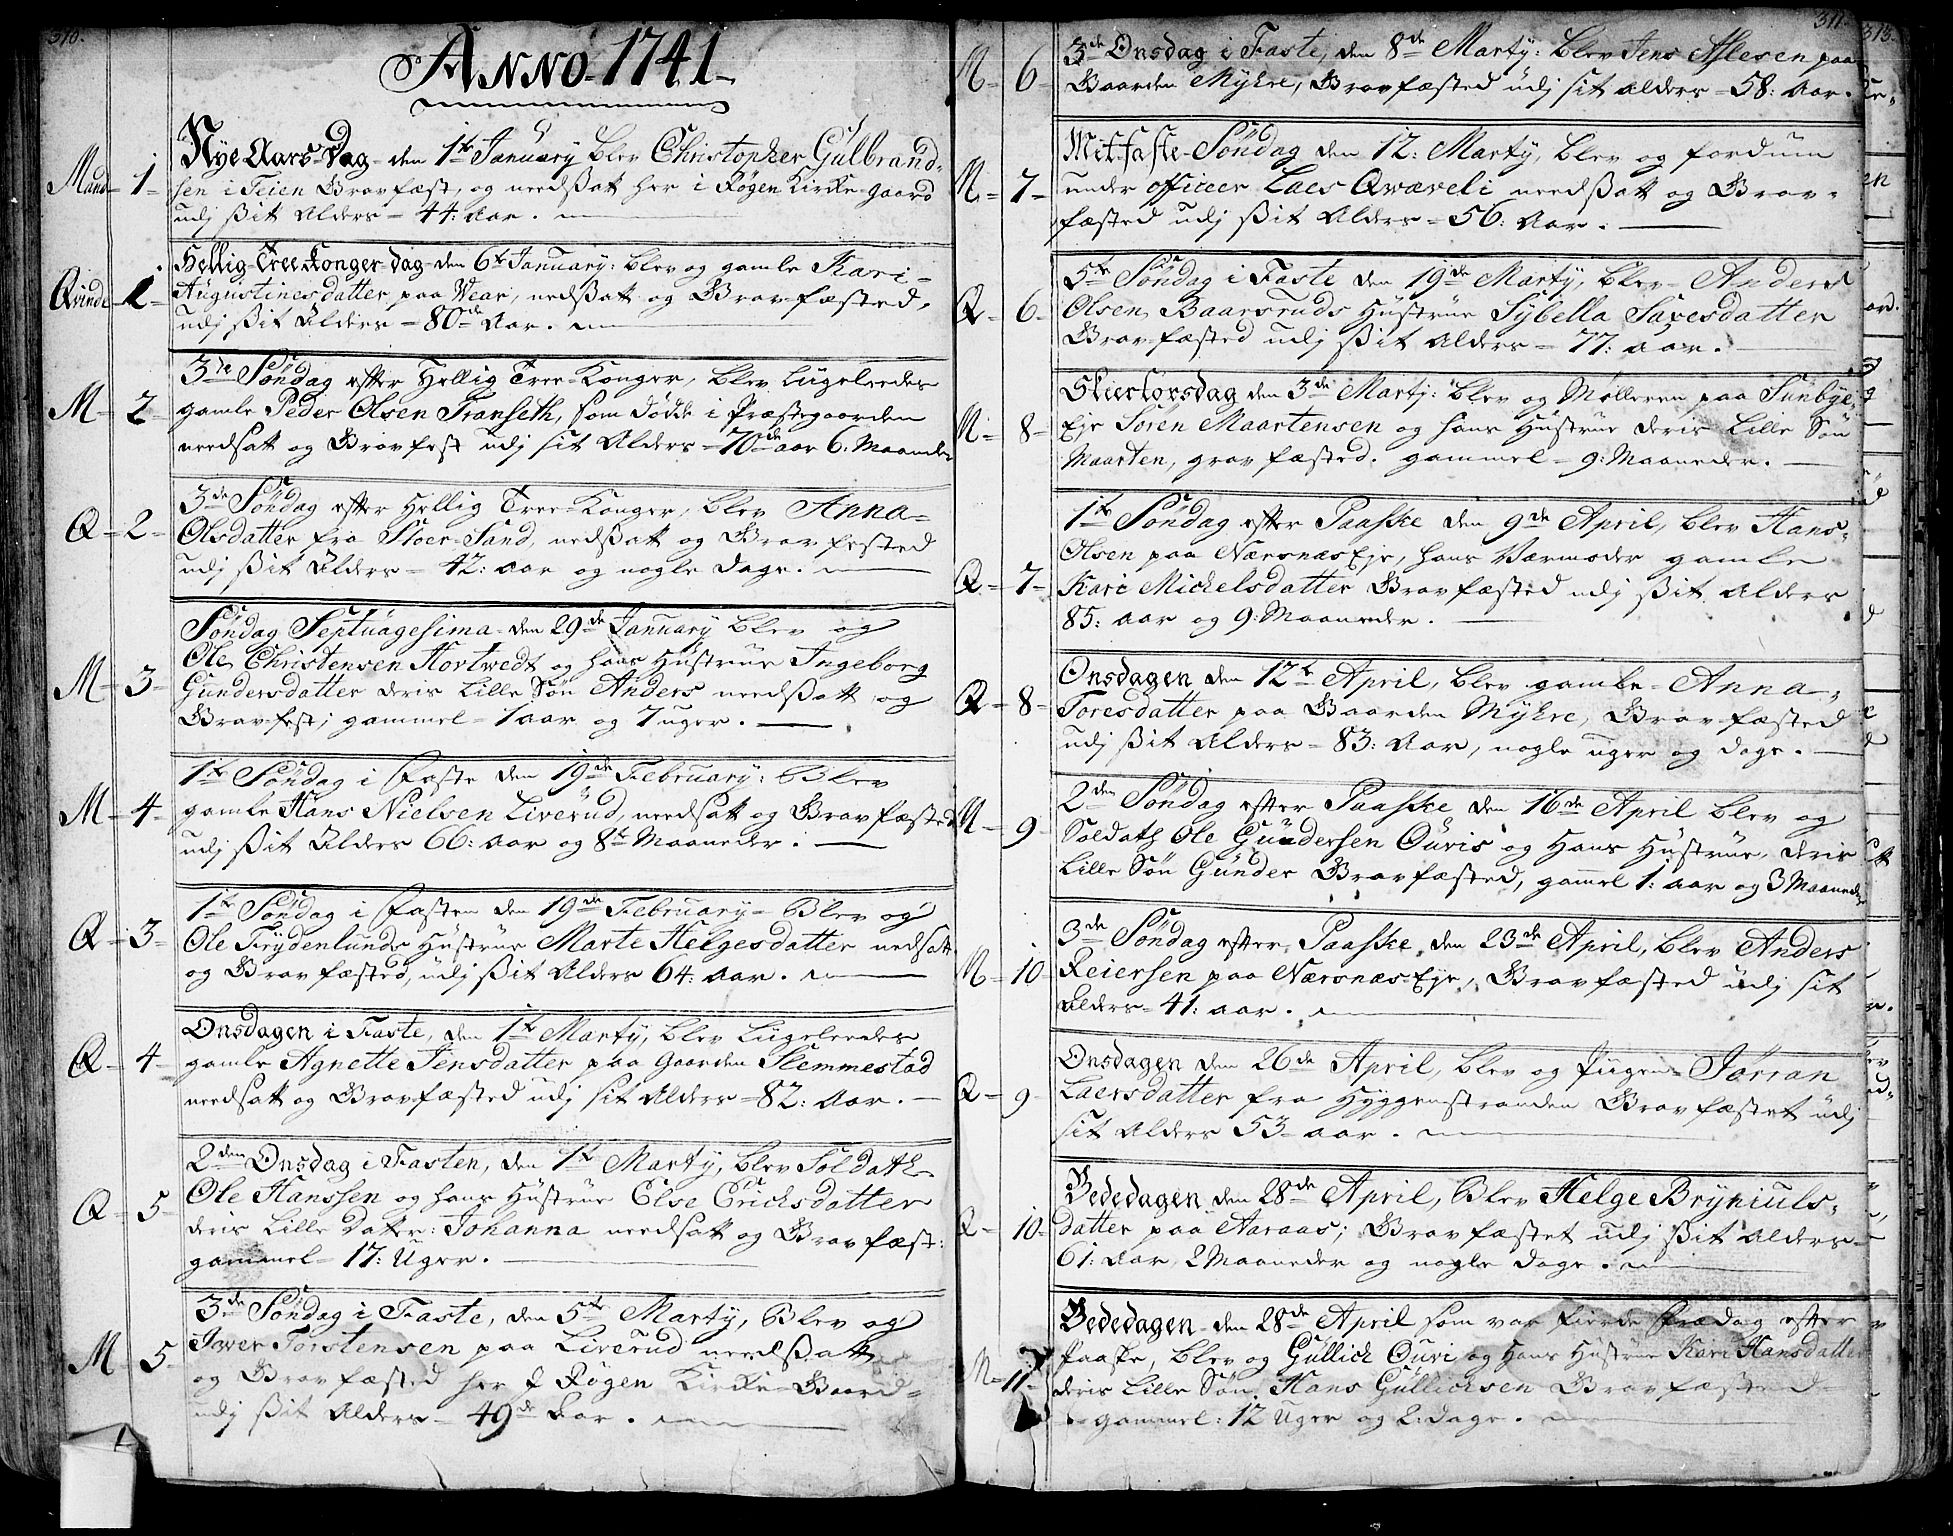 310.
ANNO 1741
Mand 1 Nye Aars-Dag den 1te January blev Christopher Gulbrand-
sen i Teien Gravfæst, og needsatt her i Røgen Kirke-gaard
udj sit Alders 44: Aar.
Qvinde 1 Hellig Tree Konger dag den 6te January: blev og gamle Kari
Augustinesdatter paa Wear, nedsatt og Gravfæsted,
udj sit Alders 80de Aar.
M 2 3de Søndag efter Hellig Tree Konger, blev ligeleedes
gamle Peder Olsen Franseth, som døde i Præstegaarden
needsatt og Gravfest udj sit Alders 70de aar 6: Maaneder
Q 2 3de Søndag efter Hellig Tree Konger, blev Anna
Olsdatter fra Stoer-Sand, nedsatt og Gravfested
udj sit Alders 42: aar og nogle dage.
M 3 Søndag Septuagesima den 29de January blev og
Ole Christensen Hortwedt og hans Hustrue Ingeborg
Gundersdatter deris Lille Søn Anders needsatt og
Gravfest; gammel 1 aar og 7 uger.
M 4 1te Søndag i Faste den 19de February: Blev
gamle Hans Nielsen Liverud, needsatt og Gravfæsted
udj sit Alders 66: Aar og 8te Maaneder.
Q 3 1te Søndag i Fasten den 19de February Blev og
Ole Frydenlunds Hustrue Marte Helgesdatter nedsatt
og Gravfæsted, udj sit Alders 64: Aar.
Q 4 Onsdagen i Faste, den 1te Marty, blev Ligeleedes
gamle Agnette Jensdatter paa Gaarden Slemmestad
needsatt og Gravfæsted udj sit Alders 82: Aar.
Q 5 2den Onsdag i Fasten, den 1te Marty, blev Soldath
Ole Hanssen og hans Hustrue Else Ericksdatter
deris Lille Datter: Johanna needsatt og Gravfæst:
gammel 17: Uger.
M 5 3de Søndag i Faste, den 5te Marty, Blev og
Iwer Torstensen paa Liverud needsatt
og Gravfæsted her i Røgen Kirke-Gaard
udj sit Alders 49de Aar.
311.
313.
M 6 3de Onsdag i Faste, den 8de Marty: blev Jens Aslesen paa
Gaarden Mykre, Gravfæsted udj sit alders 58: Aar.
M 7 Mitfaste Søndag den 12: Marty, blev og fordum
under officeer Laes Qvæveli needsatt og Grav-
fæsted udj sit Alders 56: Aar.
Q 6 5te Søndag i Faste den 19de Marty, blev Anders
Olsen Baarsruds Hustrue Sybella Savesdatter
Gravfæsted udj sit Alders 77: aar.
M 8 Skiertorsdag den 3de Marty: blev og Mølleren paa Sundbye
Eje Søren Maartensen og hans Hustrue deris Lille Søn
Maarten, gravfæsted. gammel 9: Maaneder.
Q 7 1te Søndag efter Paaske den 9de April, blev Hans
Olsen paa Nærsnæs Eje, hans Værmoder gamle
Kari Michelsdatter Gravfæsted udj sit Alders
85: aar og 9: Maaneder.
Q 8 Onsdagen den 12te April, blev gamle Anna
Toresdatter paa Gaarden Mykre, Gravfæsted
udj sit Alders 83: Aar, nogle uger og dage.
M 9 2den Søndag efter Paaske den 16de April blev og
Soldath Ole Gundersen Ouris og Hans Hustrue, deris
Lille Søn Gunder Gravfæsted, gamel 1: aar og 3 Maaneder
M 10 3de Søndag efter Paaske den 23de April, blev Anders
Reiersen paa Nærsnæs-Eje, Gravfæsted udj sit
Alders 41: aar.
Q 9 Onsdagen den 26de April, blev og Piigen Jorran
Laersdatter fra Hyggenstranden Gravfæstet udj
sit Alders 53 aar.
Q 10 Bededagen den 28de April, Blev Helge Bryniuls-
datter paa Aaraas; Gravfæstet udj sit Alders
61: Aar, 2 Maaneder og nogle dage.
M 11 Bededagen den 28de April som var fierde Fredag efter
Paaske, blev og Gullich Ouri og Hans Hustrue Kari Hansdatter
deris Lille Søn Hans Gullichsen Gravfæsted
gammel: 12 Uger og 2: dage.